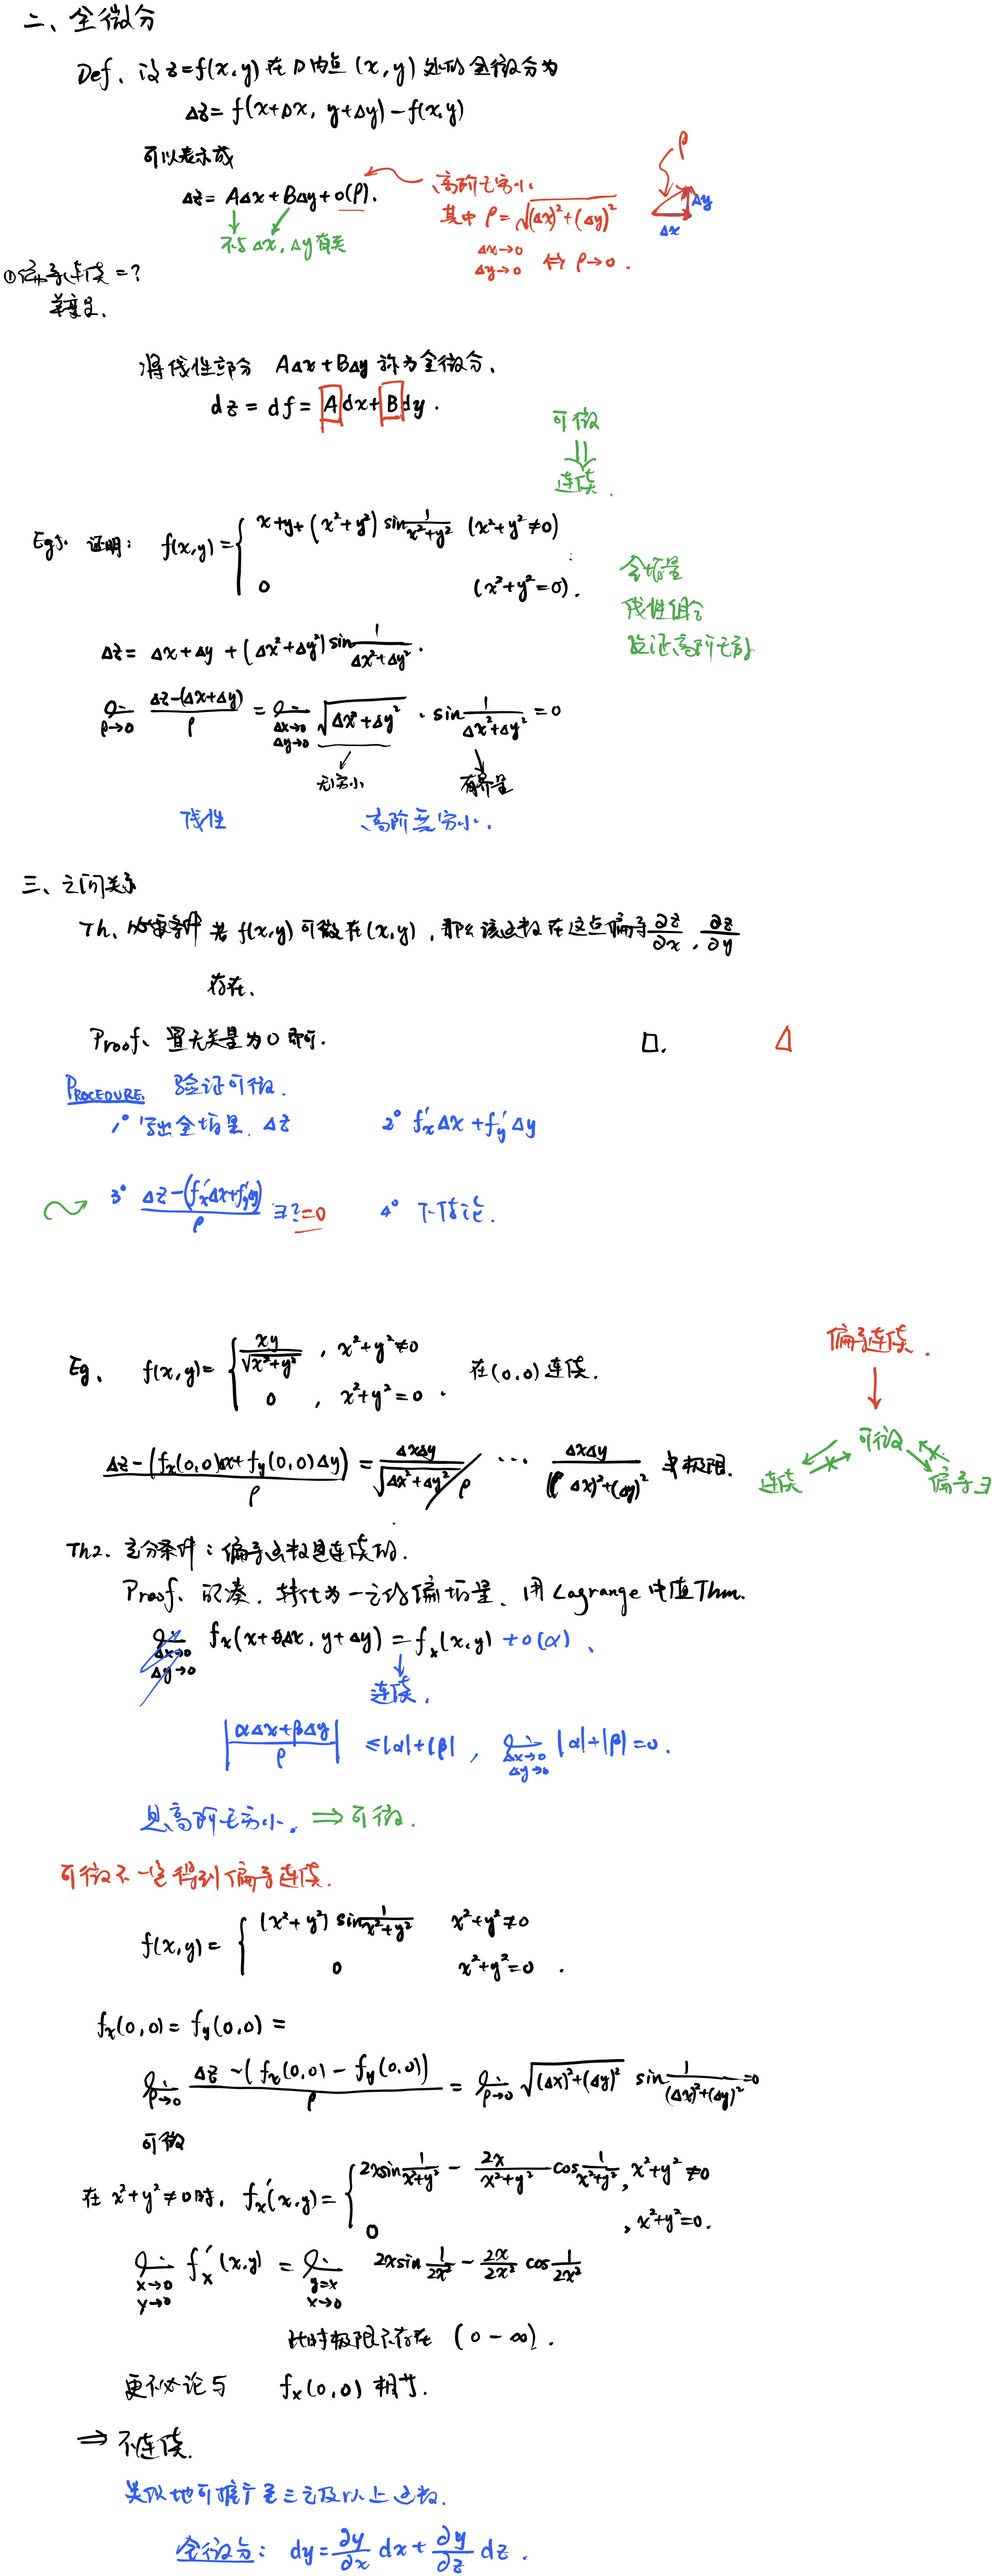 二、全微分
Def、设 z=f(x,y) 在 D 内点 (x,y) 处的全微分为
Δz = f(x+Δx, y+Δy) - f(x,y)
可以表示成
Δz = AΔx + BΔy + o(ρ).
高阶无穷小.
其中 ρ = √((Δx)²+(Δy)²)
Δx→0
Δy→0 ⇔ ρ→0 .
ρ
Δy
Δx
不与 Δx, Δy 有关
①偏导连续 = ?
将线性部分 AΔx + BΔy 称为全微分、
dz = df = A dx + B dy .
可微
⇓
连续 .
Eg. 证明: f(x,y) = { x+y+(x²+y²) sin 1/(x²+y²) (x²+y²≠0)
0 (x²+y²=0) .
全增量
线性组合
验证高阶无穷小
Δz = Δx+Δy + (Δx²+Δy²) sin 1/(Δx²+Δy²) .
lim ρ→0 (Δz-(Δx+Δy))/ρ = lim Δx→0 Δy→0 √(Δx²+Δy²) · sin 1/(Δx²+Δy²) = 0
无穷小 有界量
线性 高阶无穷小 .
三、之间关系
Th、必要条件 若 f(x,y) 可微在 (x,y) , 那么该函数在这点偏导 ∂z/∂x , ∂z/∂y
存在、
Proof、置无关量为 0 即可. □. Δ
PROCEDURE. 验证可微 .
1° 写出全增量 Δz 2° f'x Δx + f'y Δy
3° (Δz-(f'xΔx+f'yΔy))/ρ ∃? =0 4° 下结论 .
Eg、 f(x,y) = { xy/√(x²+y²) , x²+y²≠0
0 , x²+y²=0 . 在(0,0)连续 .
偏导连续 .
↓
可微
连续
偏导∃
(Δz-(fx(0,0)Δx+fy(0,0)Δy))/ρ = ΔxΔy/√(Δx²+Δy²) / ρ ⋯ ΔxΔy/((Δx)²+(Δy)²) 极限.
Th2. 充分条件: 偏导函数是连续的.
Proof、配凑 . 转化为一元的偏增量 . 用 Lagrange 中值Thm.
lim Δx→0 Δy→0 fx(x+θΔx, y+Δy) = fx(x,y) + o(α) 、
连续 .
|(αΔx+βΔy)/ρ| ≤ |α|+|β| , lim Δx→0 Δy→0 |α|+|β| = 0 .
是高阶无穷小. ⇒ 可微 .
可微不一定得到偏导连续.
f(x,y) = { (x²+y²) sin 1/(x²+y²) x²+y²≠0
0 x²+y²=0 .
fx(0,0) = fy(0,0) =
lim ρ→0 (Δz-(fx(0,0)-fy(0,0)))/ρ = lim ρ→0 √((Δx)²+(Δy)²) sin 1/((Δx)²+(Δy)²) =0
可微
在 x²+y²≠0时, f'x(x,y) = { 2x sin 1/(x²+y²) - 2x/(x²+y²) cos 1/(x²+y²) , x²+y²≠0
0 , x²+y²=0.
lim x→0 y→0 f'x(x,y) = lim y=x x→0 2x sin 1/2x² - 2x/2x² cos 1/2x²
此时极限不存在 (0-∞) .
更不必论与 fx(0,0) 相等.
⇒ 不连续.
类似地可推广至三元及以上函数.
全微分: dy = ∂y/∂x dx + ∂y/∂z dz .